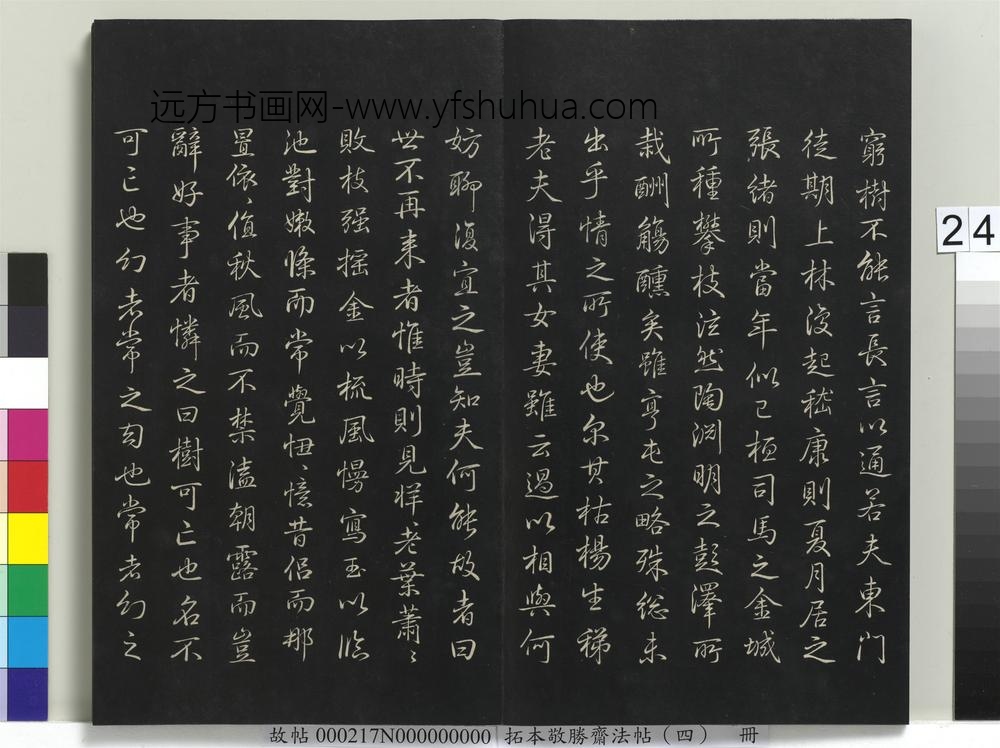 远方书画网-www.yfshuhua.com
窮樹不能言長言以通若夫東門
徒期上林復起嵇康則夏月居之
張緒則當年似已桓司馬之金城
所種攀枝泫然陶淵明之彭澤所
栽酬觴醺矣雖亨屯之略殊総未
出乎情之所使也尔其枯楊生稊
老夫得其女妻雖云過以相與何
妨聊復宜之豈知夫何能故者曰
世不再来者惟時則見牂老葉蕭〻
敗枝强搖金以梳風慢寫玉以臨
池對嫩條而常覺忸〻憶昔侣而那
量依〻值秋風而不禁溘朝露而豈
辭好事者憐之曰樹可亡也名不
可亡也幻者常之匃也常者幻之
24
故帖 000217N000000000 拓本敬勝齋法帖（四） 冊